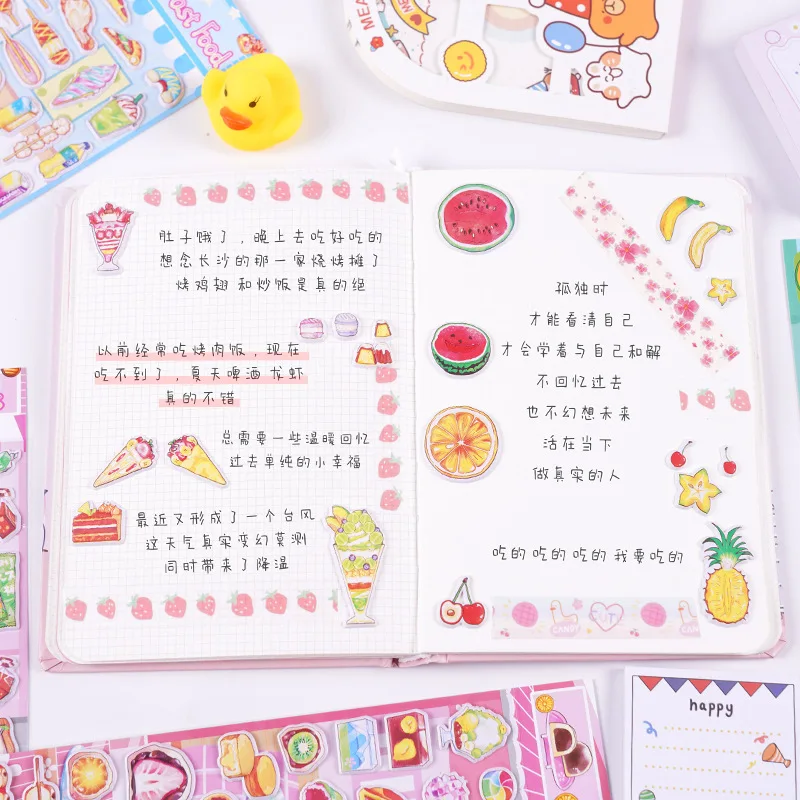 Fast Food
MEA
肚子饿了，晚上去吃好吃的
想念长沙的那一家烧烤摊了
烤鸡翅和炒饭是真的绝
以前经常吃烤肉饭，现在
吃不到了，夏天啤酒龙虾
真的不错
总需要一些温暖回忆
过去单纯的小幸福
最近又形成了一个台风
这天气真实变幻莫测
同时带来了降温
孤独时
才能看清自己
才会学着与自己和解
不回忆过去
也不幻想未来
活在当下
做真实的人
吃的吃的吃的我要吃的
CANDY
CUTE
CA
happy